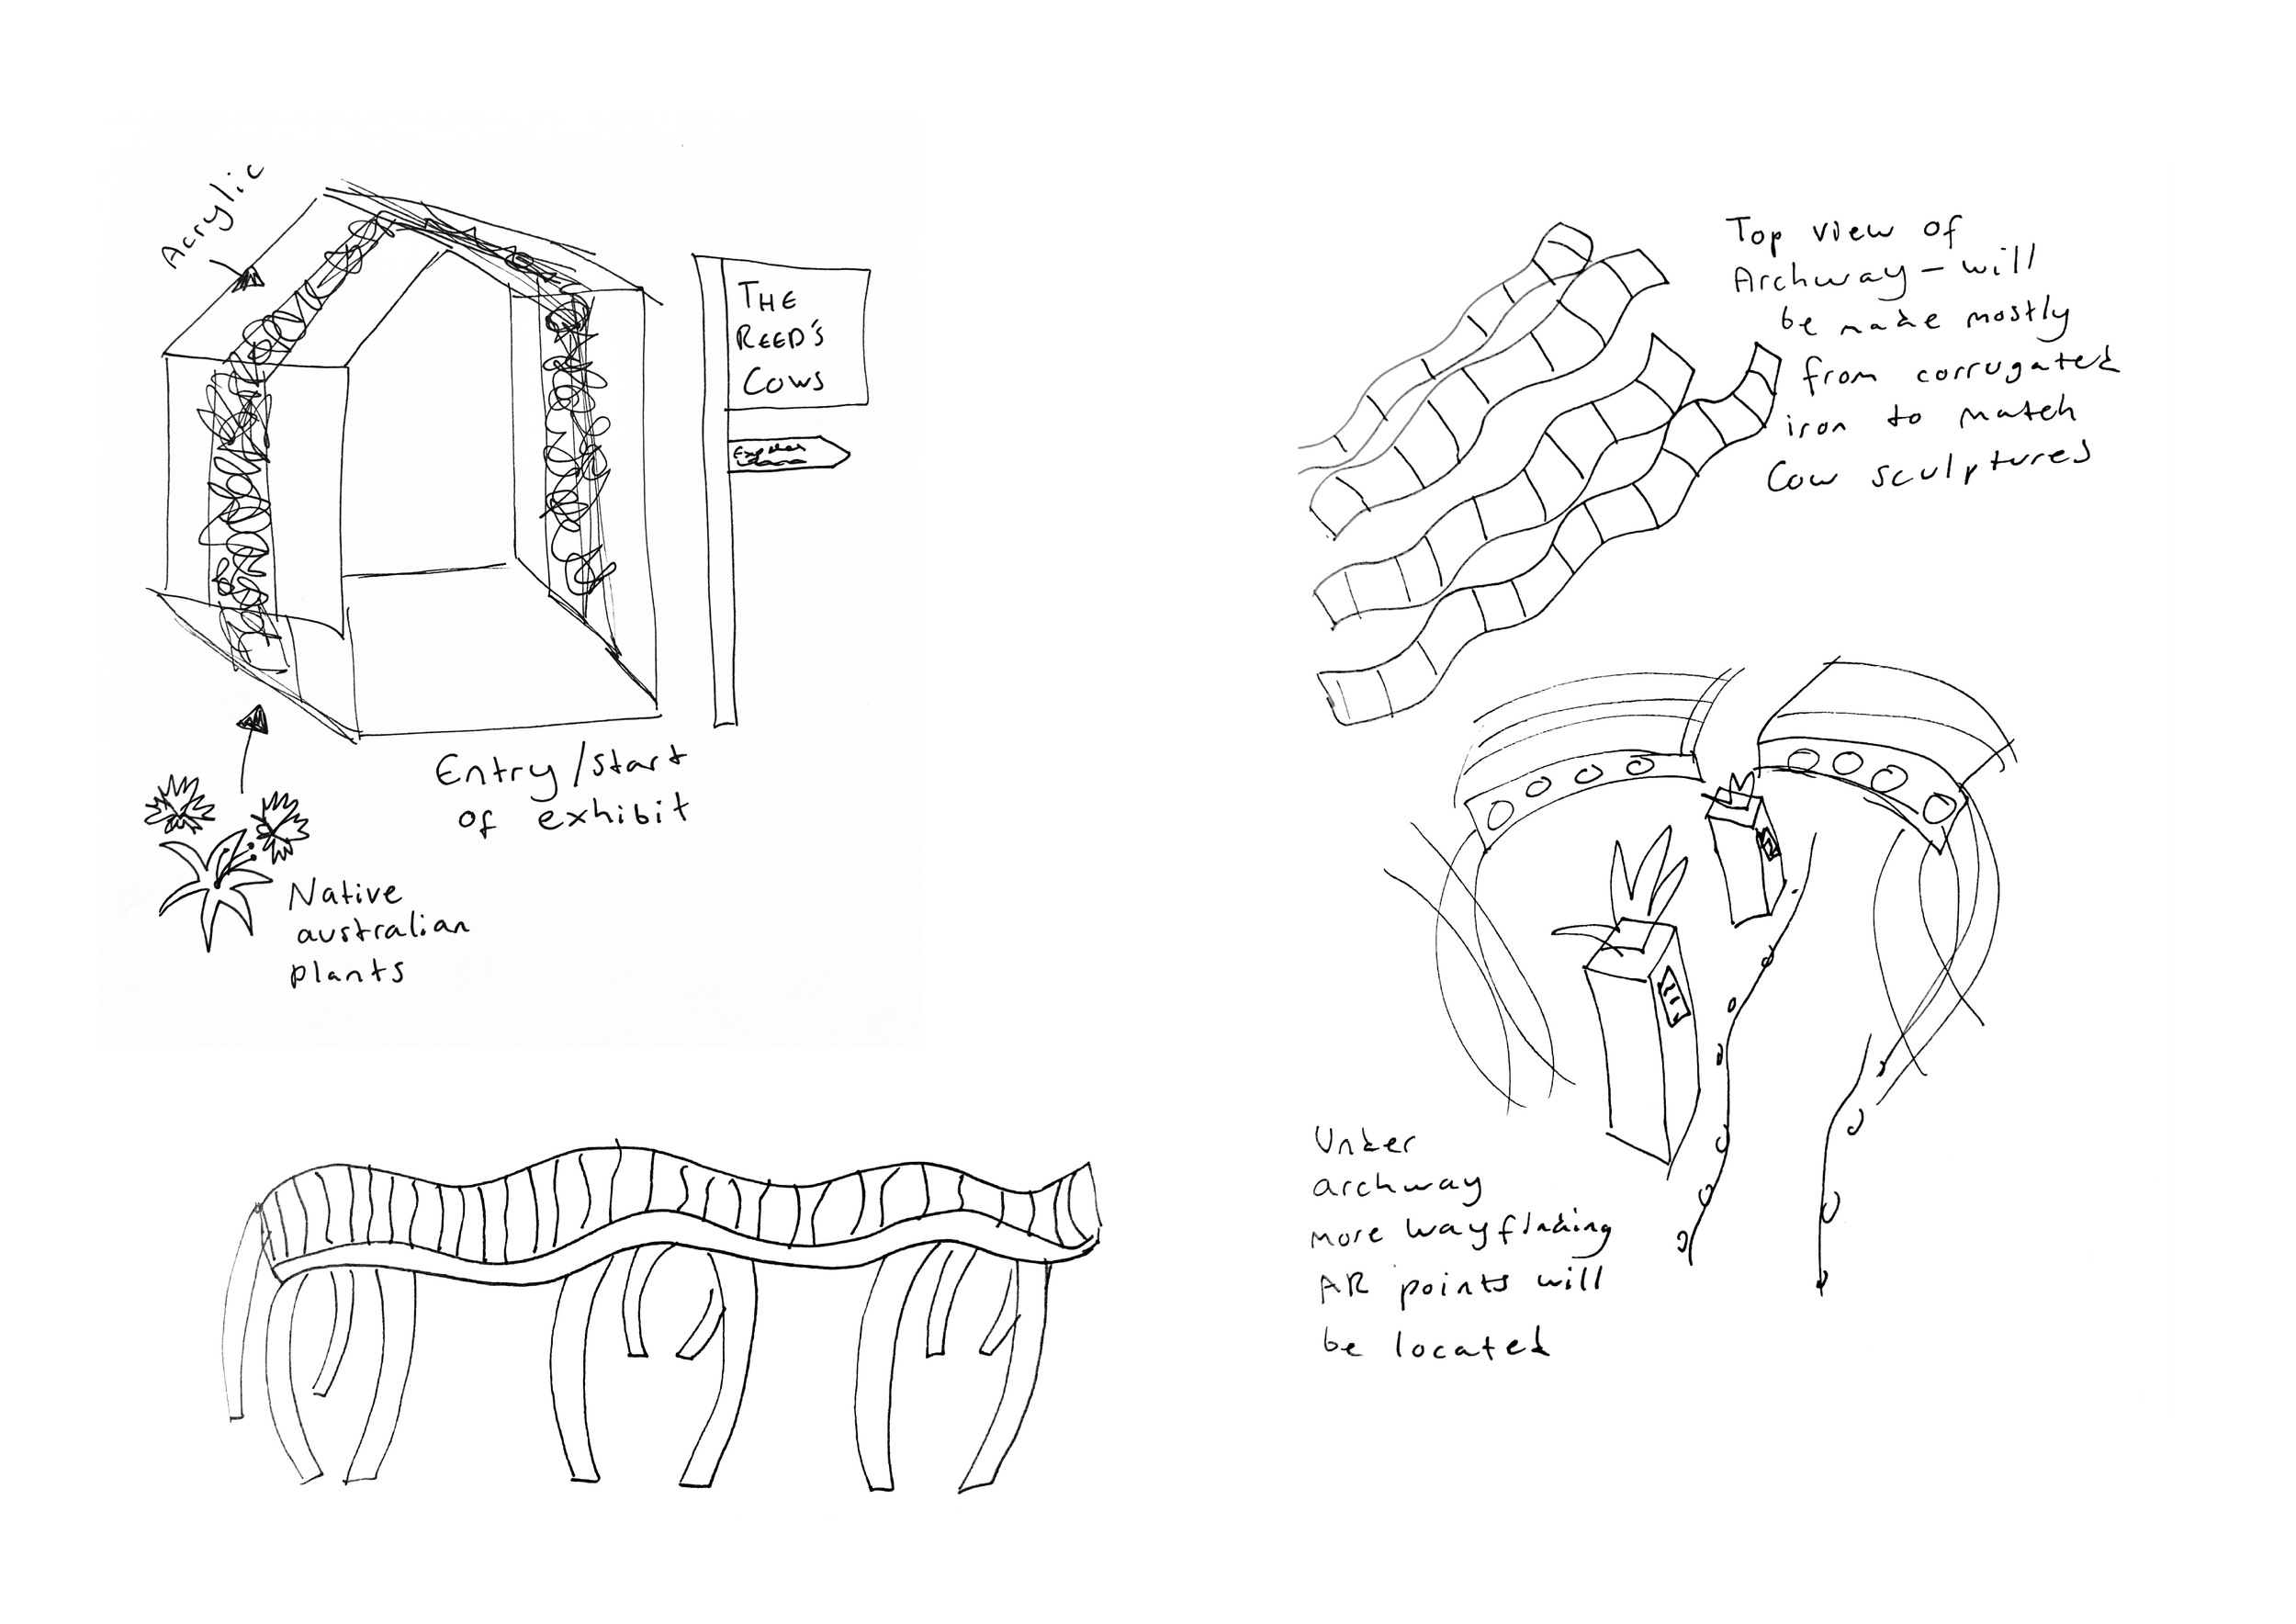 Acrylic
THE
REED'S
COWS
Entry/start
of exhibit
Native
australian
plants
Top view of
Archway - will
be made mostly
from corrugated
iron to match
Cow sculptures
Under
archway
more wayfinding
AR points will
be located